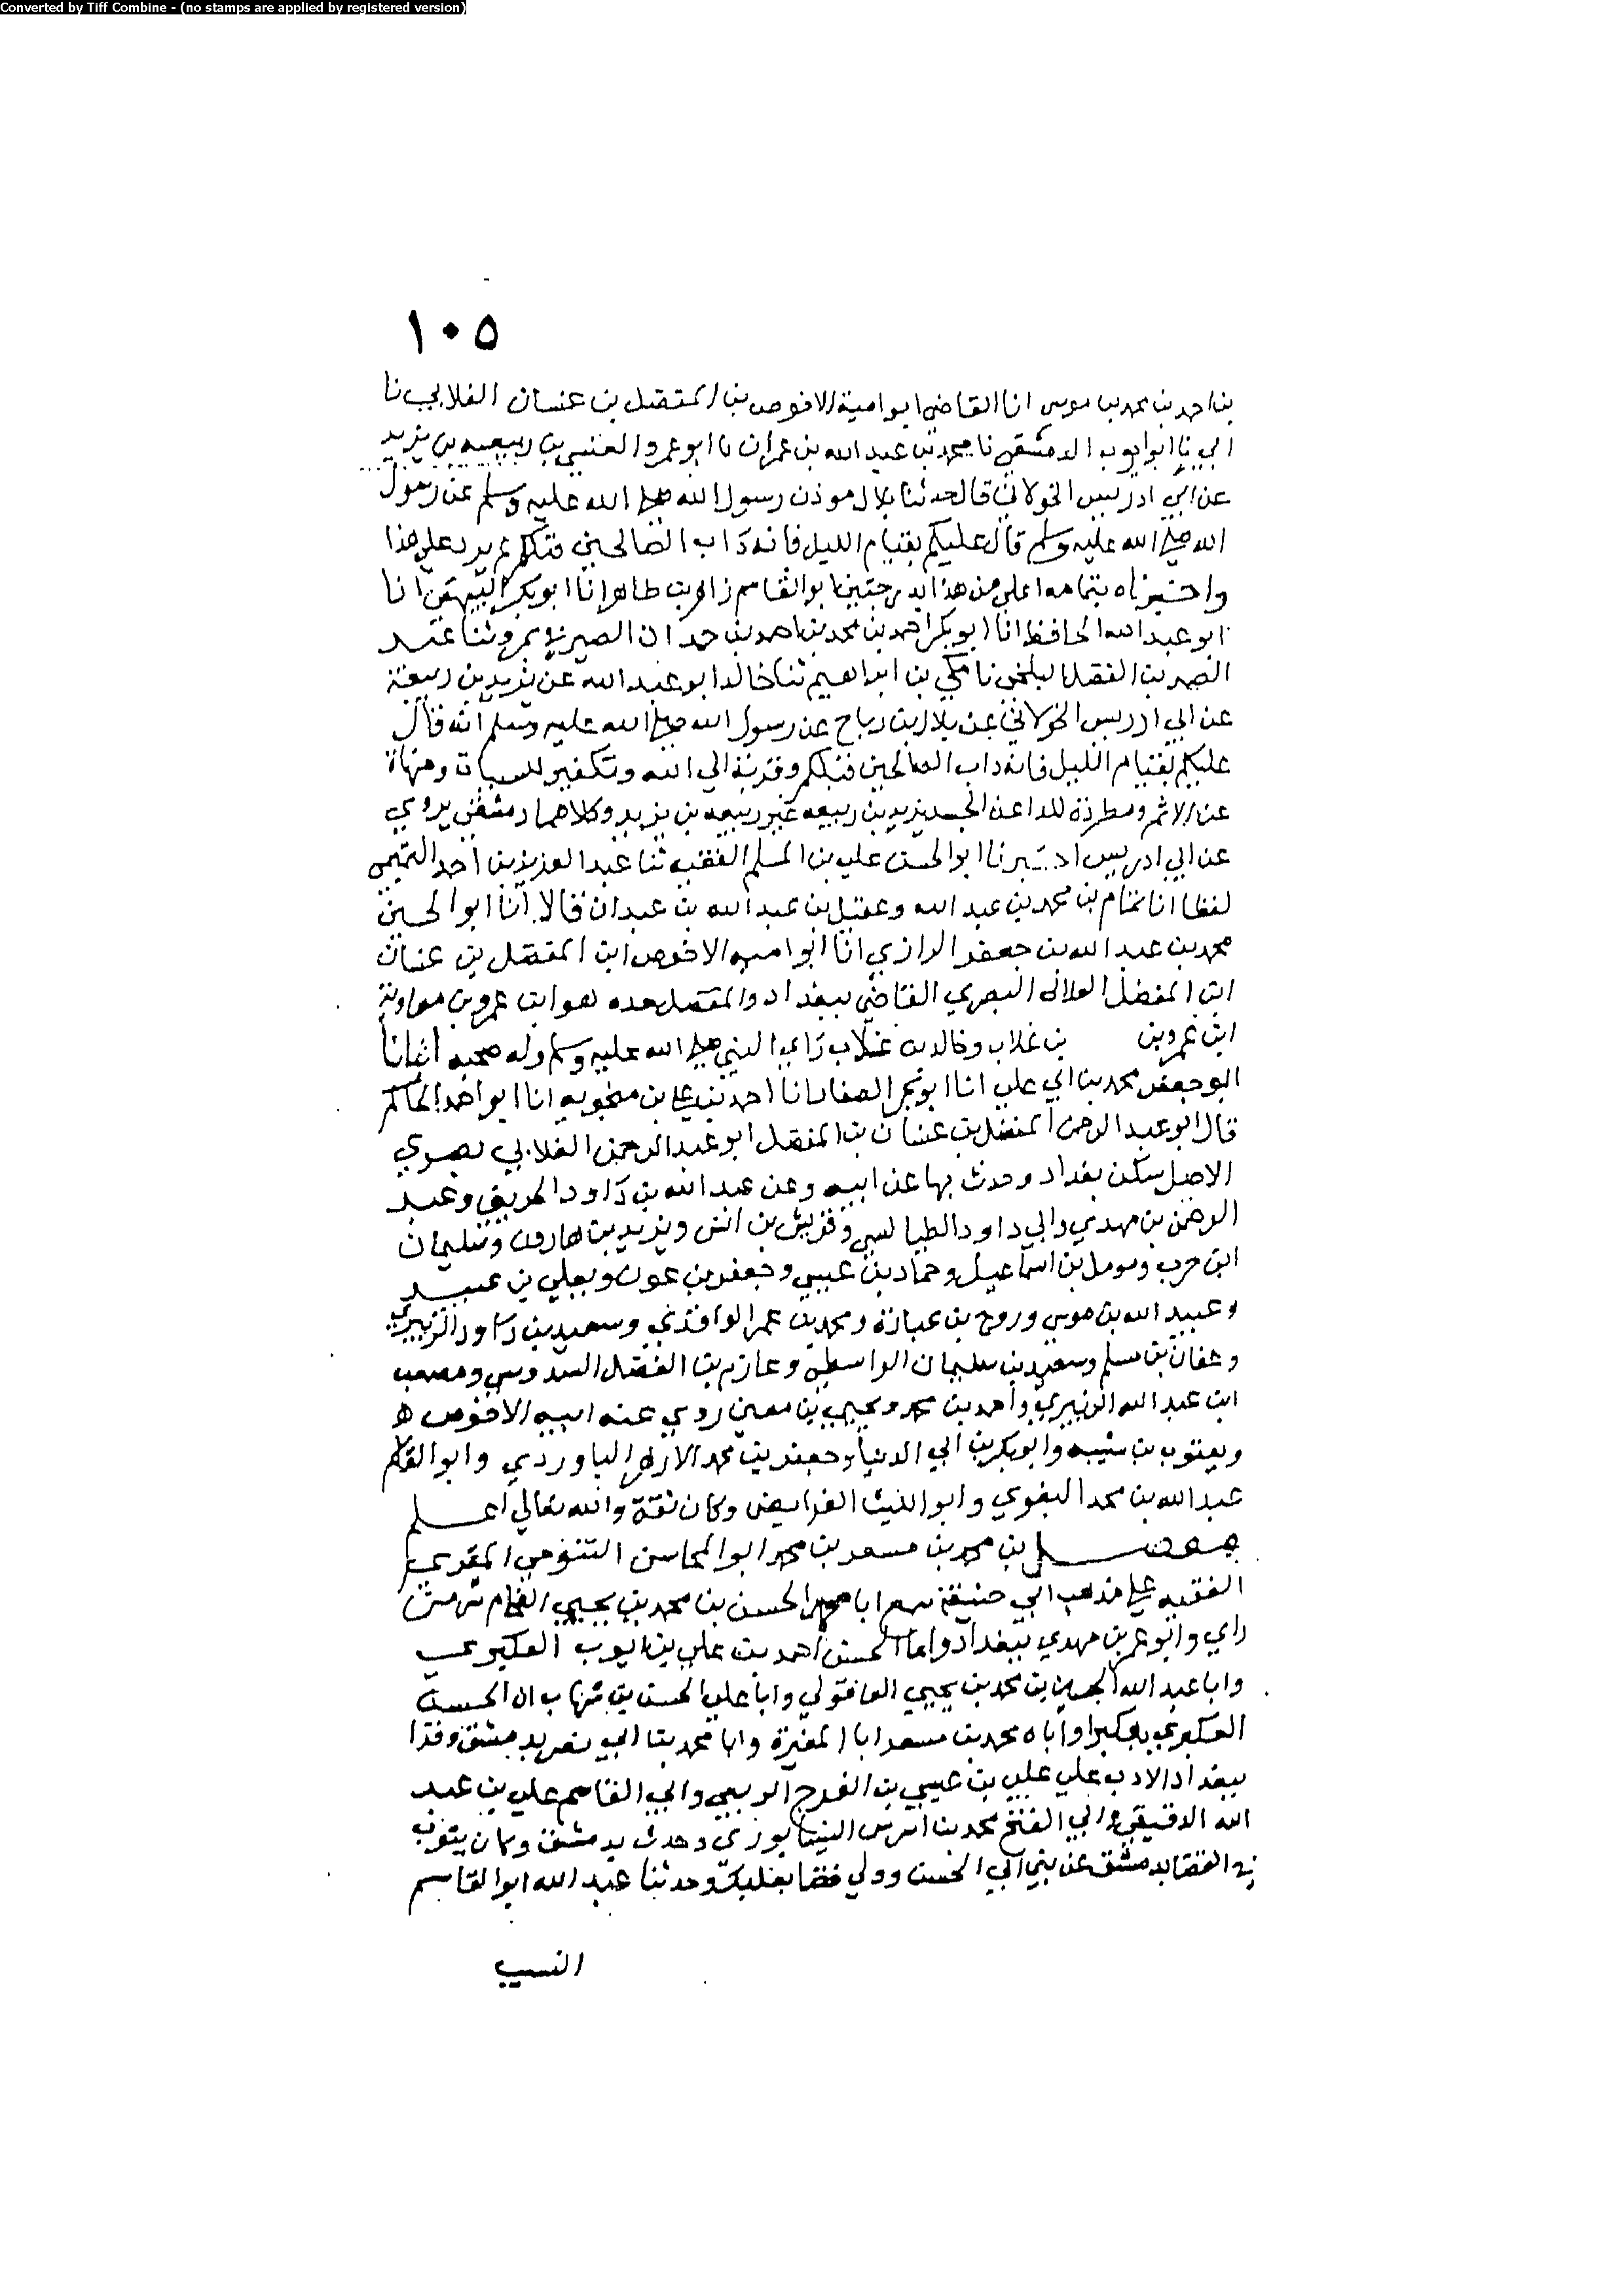 Converted by Tiff Combine - (no stamps are applied by registered version)
١٠٥
بن احمد بن محمد بن موسى انا القاضي ابو امية الاخوص بن المفضل بن غسان الغلابي نا
ابي نا ابو ايوب الدمشقي نا محمد بن عبد الله بن عمران نا ابو عمرو العنسي بن ربيعه بن يزيد
عن ابي ادريس الخولاني قال حدثنا بلال موذن رسول الله صلى الله عليه وسلم عن رسول
الله صلى الله عليه وسلم قال عليكم بقيام الليل فانه داب الصالحين قبلكم لم يزد على هذا
واخبرناه بتمامه اعلى من هذا بدرجتين ابو القاسم زاهر بن طاهر انا ابو بكر البيهقي انا
ابو عبد الله الحافظ انا ابو بكر احمد بن محمد بن احمد بن حمدان الصيرفي بمرو ثنا عبد
الصمد بن الفضل البلخي نا مكي بن ابراهيم ثنا خالد ابو عبد الله عن يزيد بن ربيعة
عن ابي ادريس الخولاني عن بلال بن رباح عن رسول الله صلى الله عليه وسلم انه قال
عليكم بقيام الليل فانه داب الصالحين قبلكم وقربة الى الله وتكفير للسيات ومنهاة
عن الاثم ومطردة للداء عن الجسد يزيد بن ربيعه غير ربيعه بن يزيد وكلاهما دمشقي يروي
عن ابي ادريس اخبرنا ابو الحسن علي بن المسلم الفقيه ثنا عبد العزيز بن احمد التميمي
لفظا انا تمام بن محمد بن عبد الله وعقيل بن عبد الله بن عبدان قالا انا ابو الحسين
محمد بن عبد الله بن جعفر الرازي انا ابو اميه الاخوص ابن المفضل بن غسان
ابن المفضل الغلابي البصري القاضي ببغداد والمفضل جده هو ابن عمرو بن معاوية
ابن عمرو بن بن غلاب وخالد بن غلاب راي النبي صلى الله عليه وسلم وله صحبه انبانا
ابو جعفر محمد بن ابي علي انا ابو بكر الصفار انا احمد بن علي بن منجويه انا ابو احمد الحاكم
قال ابو عبد الرحمن المفضل بن غسان بن المفضل ابو عبد الرحمن الغلابي بصري
الاصل سكن بغداد وحدث بها عن ابيه وعن عبد الله بن داود الخريبي وعبد
الرحمن بن مهدي وابي داود الطيالسي وقريش بن انس ويزيد بن هارون وسليمان
ابن حرب ومومل بن اسماعيل وحماد بن عيسى وجعفر بن عون ويعلى بن عبيد
وعبيد الله بن موسى وروح بن عبادة ومحمد بن عمر الواقدي وسعيد بن داود الزنبري
وعفان بن مسلم وسعيد بن سليمان الواسطي وعارم بن الفضل السدوسي ومصعب
ابن عبد الله الزبيري واحمد بن محمد ويحيى بن معين روى عنه ابنه الاخوص ه
ويعقوب بن شيبه وابو بكر بن ابي الدنيا وجعفر بن محمد الازهر الباوردي وابو القاسم
عبد الله بن محمد البغوي وابو الليث الفرايضي وكان ثقة والله تعالى اعلم
مفضل بن محمد بن مسعر بن محمد ابو المحاسن التنوخي المقري
الفقيه على مذهب ابي حنيفة سمع ابا محمد الحسن بن محمد بن يحيى الفحام بسر من
راي وابو عمر بن مهدي ببغداد وابا الحسن احمد بن علي بن ايوب العكبري
وابا عبد الله الحسين بن محمد بن يحيى العاقولي وابا علي الحسن بن شهاب ان الحسن
العكبري بعكبرا واباه محمد بن مسعر ابا المغيرة وابا محمد بن ابي نصر بدمشق وقرا
ببغداد الادب على علي بن عيسى بن الفرج الربعي وابي القاسم علي بن عبد
الله الدقيقي وابي الفتح محمد بن اشرس النيسابوري وحدث بدمشق وكان ينوب
في القضا بدمشق عن بني ابي الحسن وولي قضا بعلبك وحدثنا عبد الله ابو القاسم
النسيب